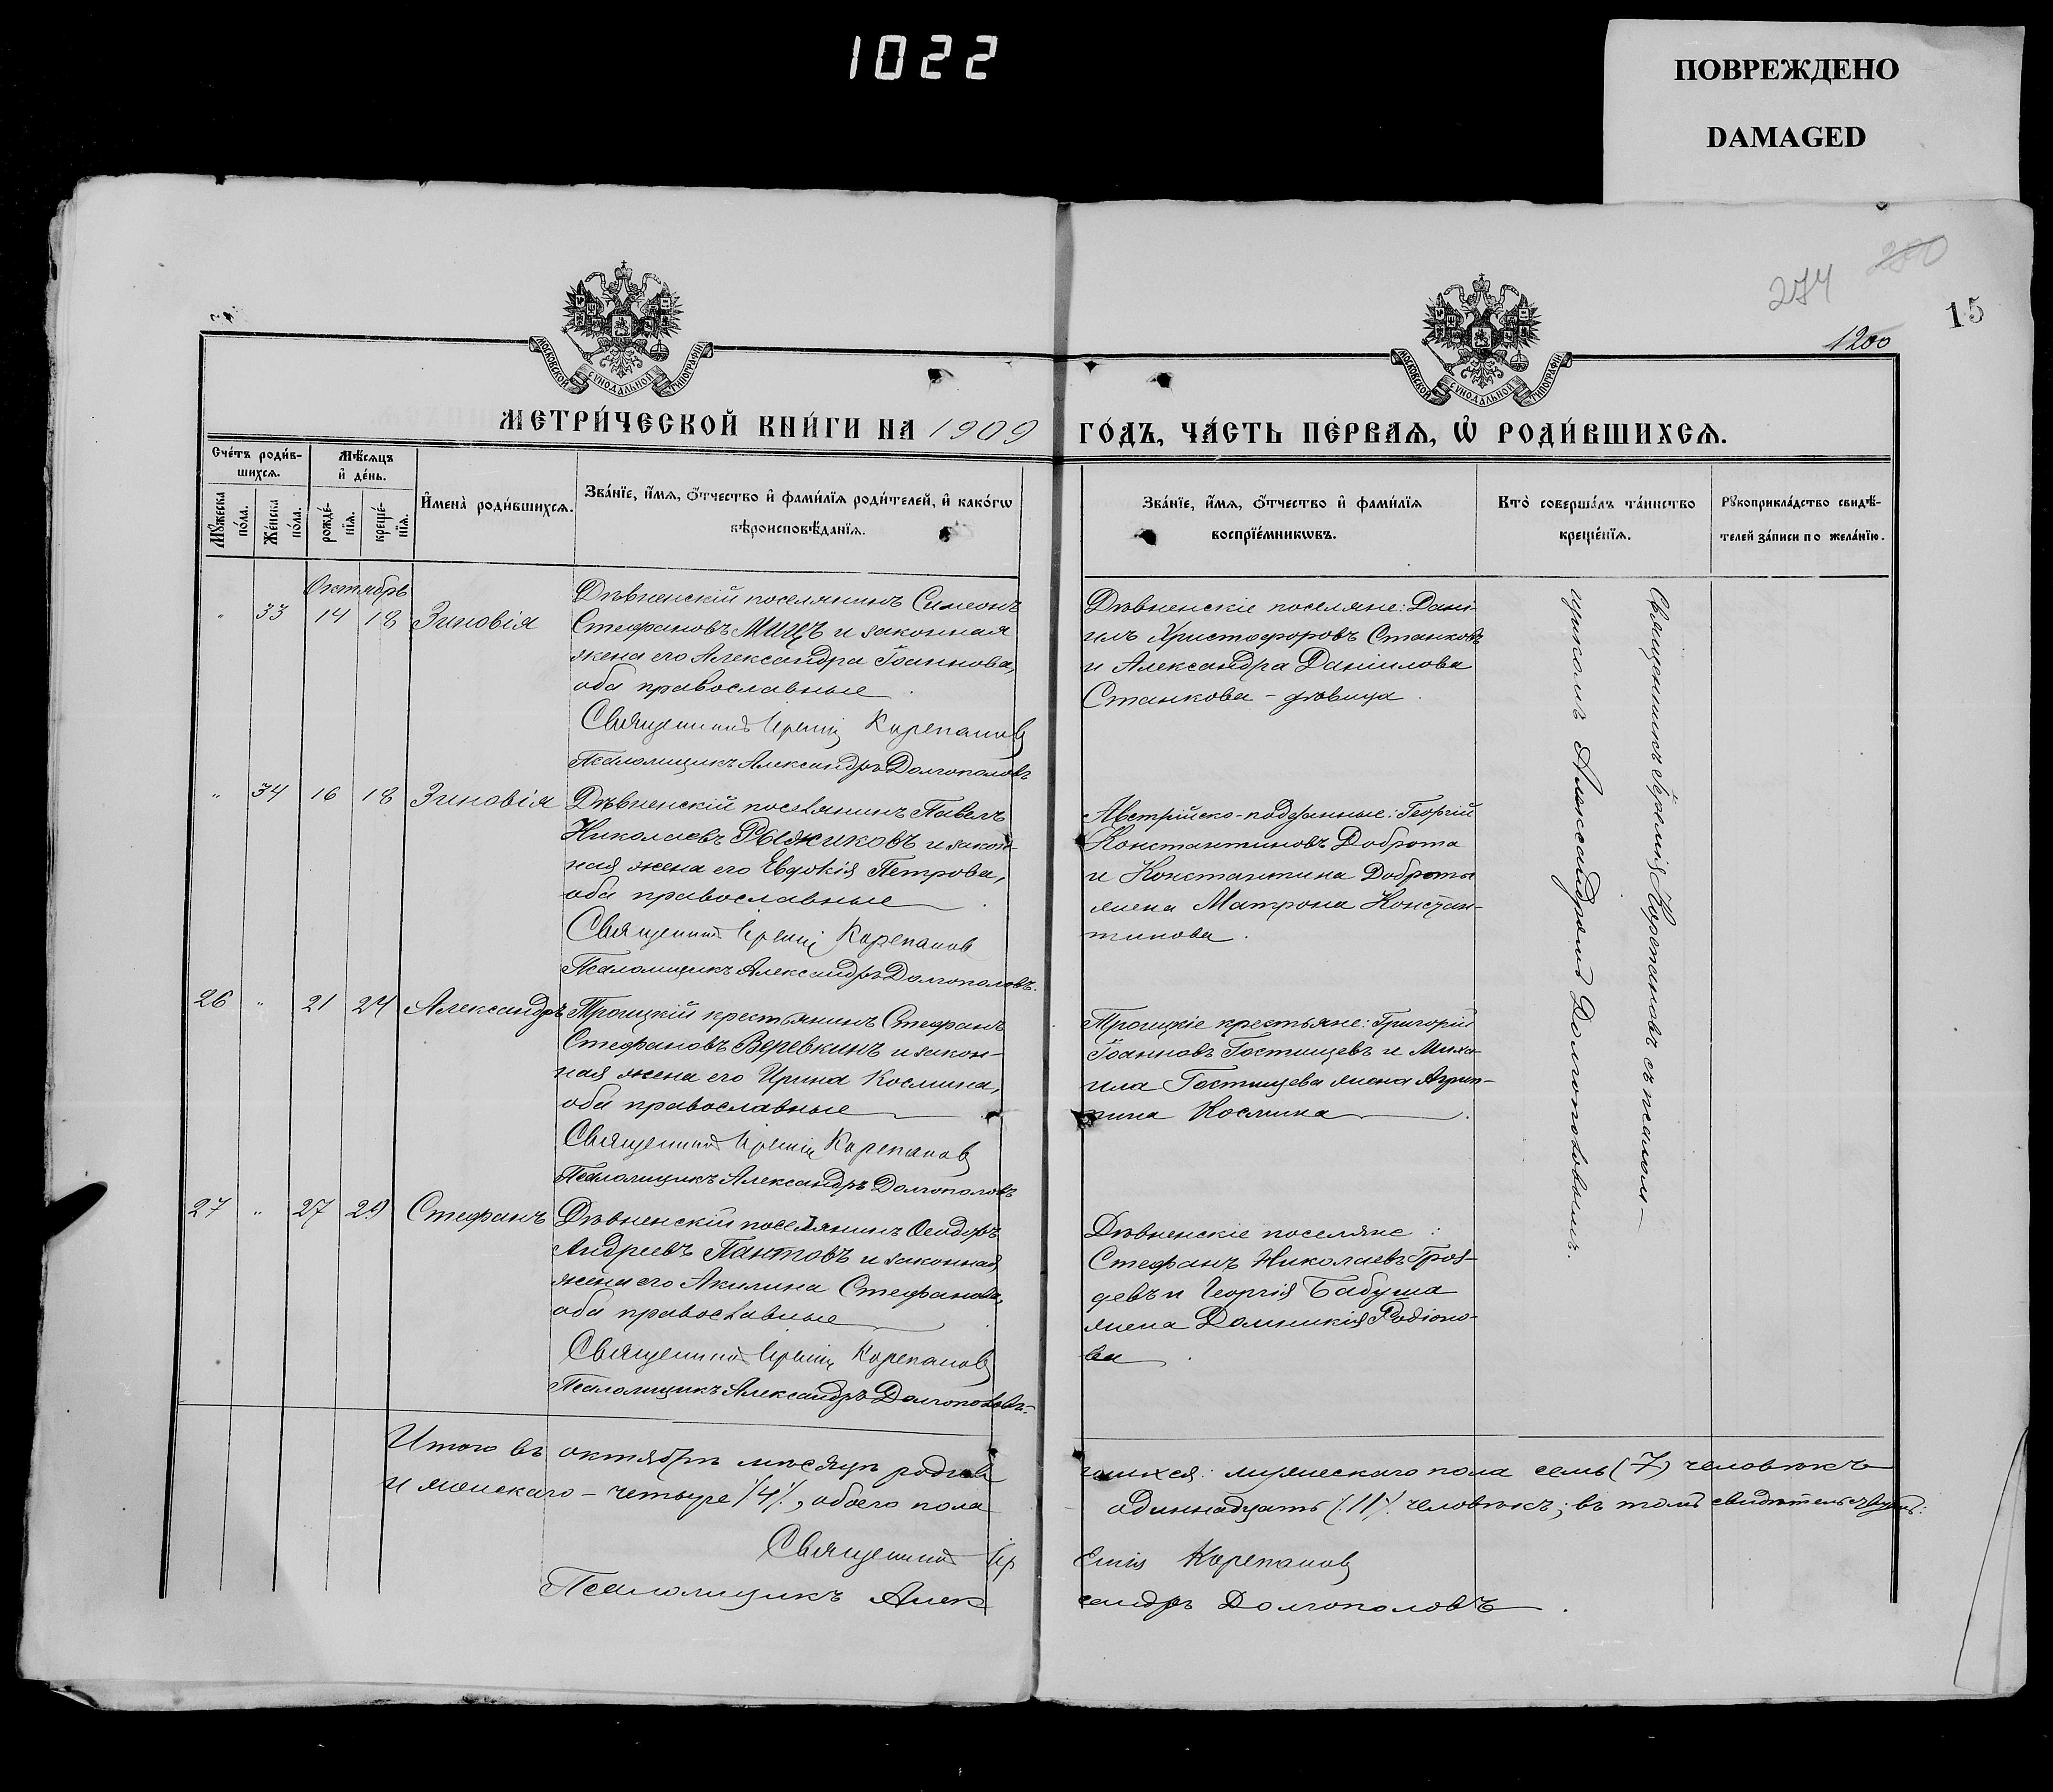 1022
ПОВРЕЖДЕНО
DAMAGED
274
200
15
1200
МОСКОВСКОЙ СУНОДАЛЬНОЙ ТИПОГРАФІИ
МОСКОВСКОЙ СУНОДАЛЬНОЙ ТИПОГРАФІИ
МЕТРИ́ЧЕСКОЙ КНИ́ГИ НА 1909 ГО́ДЪ, ЧА́СТЬ ПЕ́РВАѦ, Ѡ҆ РОДИ́ВШИХСѦ.
Сче́тъ роди́в-
шихсѧ.
Мꙋ́жеска
по́ла.
Же́нска
по́ла.
Мѣ́сѧцъ
и҆ де́нь.
рожде́-
нїѧ.
креще́-
нїѧ.
И҆мена̀ роди́вшихсѧ.
Зва́нїе, и҆́мѧ, ѻ҆́тчество и҆ фами́лїѧ роди́телей, и҆ како́гѡ
вѣроисповѣ́данїѧ.
Зва́нїе, и҆́мѧ, ѻ҆́тчество и҆ фами́лїѧ
воспрїе́мникѡвъ.
Кто̀ соверша́лъ та́инство
креще́нїѧ.
Рꙋкоприкла́дство свидѣ́-
телей за́писи по жела́нїю.
Октябрь
" 33 14 18 Зиновія
Дѣвненскій поселянинъ Симеонъ
Стефановъ МИЦЪ и законная
жена его Александра Іоаннова,
оба православные.
Священникъ Іеремія Корепановъ
Псаломщикъ Александръ Долгополовъ
Дѣвненскіе поселяне: Дані-
илъ Христофоровъ Станковъ
и Александра Даніилова
Станкова - дѣвица.
" 34 16 18 Зиновія
Дѣвненскій поселянинъ Павелъ
Николаевъ Рыжиковъ и закон-
ная жена его Евдокія Петрова,
оба православные.
Священникъ Іеремія Корепановъ
Псаломщикъ Александръ Долгополовъ.
Австрійско-подданные: Георгій
Константиновъ Доброта
и Константина Доброты
жена Матрона Констан-
тинова.
26 " 21 24 Александръ
Троицкій крестьянинъ Стефанъ
Стефановъ Веревкинъ и закон-
ная жена его Ирина Космина,
оба православные.
Священникъ Іеремія Корепановъ
Псаломщикъ Александръ Долгополовъ
Троицкіе крестьяне: Григорій
Іоанновъ Гостищевъ и Миха-
ила Гостищева жена Агрип-
пина Космина.
27 " 27 29 Стефанъ
Дѣвненскій поселянинъ Ѳеодоръ
Андреевъ Пантовъ и законная
жена его Акилина Стефанова,
оба православные.
Священникъ Іеремія Корепановъ
Псаломщикъ Александръ Долгополовъ.
Дѣвненскіе поселяне:
Стефанъ Николаевъ Гроз-
девъ и Георгія Бабуша
жена Домникія Родіоно-
ва.
Священникъ Іеремія Корепановъ съ псалом-
щикомъ Александромъ Долгополовымъ.
Итого въ октябрѣ мѣсяцѣ родив шихся: мужескаго пола семь (7) человѣкъ
и женскаго - четыре /4/, обоего пола одиннадцать /11/ человѣкъ; въ томъ свидѣтельствуемъ:
Священникъ Іеремія Корепановъ
Псаломщикъ Александръ Долгополовъ.